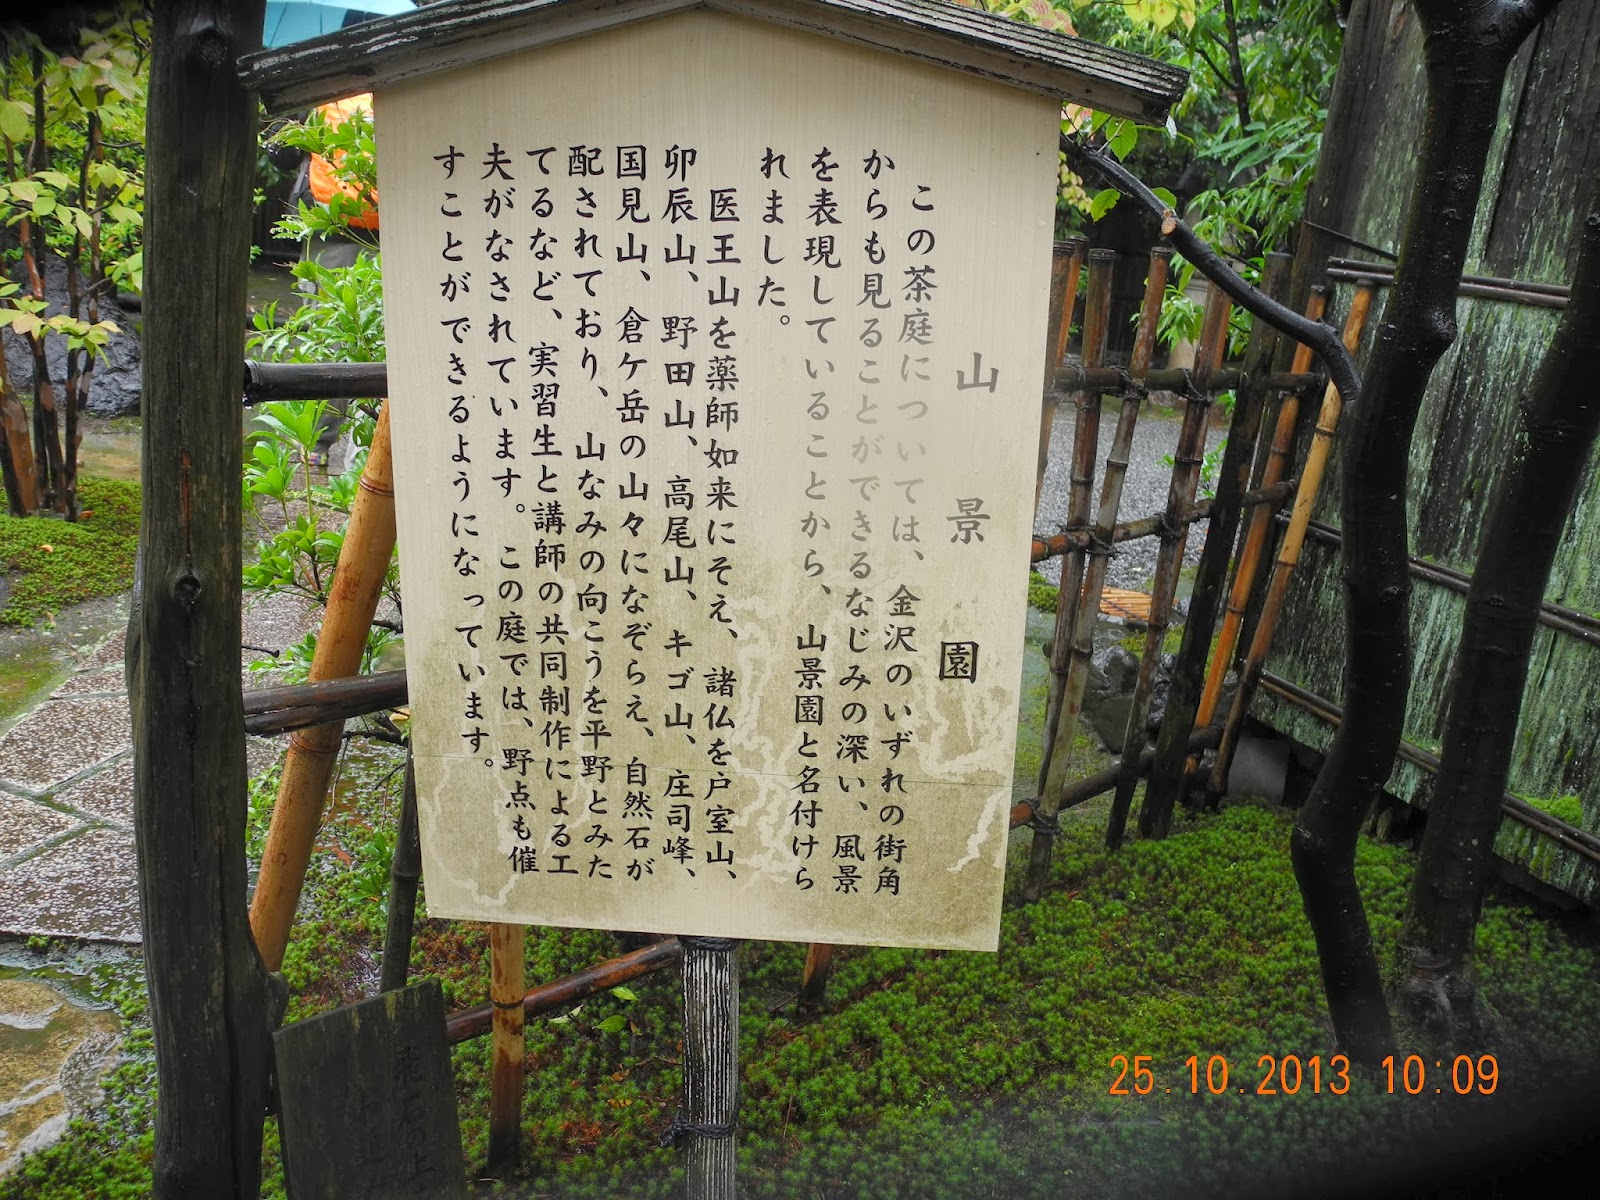 山景園
この茶庭については、金沢のいずれの街角
からも見ることができるなじみの深い、風景
を表現していることから、山景園と名付けら
れました。
医王山を薬師如来にそえ、諸仏を戸室山、
卯辰山、野田山、高尾山、キゴ山、庄司峰、
国見山、倉ケ岳の山々になぞらえ、自然石が
配されており、山なみの向こうを平野とみた
てるなど、実習生と講師の共同制作による工
夫がなされています。この庭では、野点も催
すことができるようになっています。
飛石の上
25.10.2013 10:09